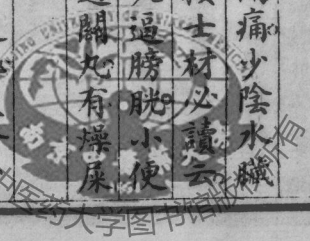 痛少陰水臟
士材必讀云
逼膀胱小便
關丸有燥屎
中医药大学图书馆版权所有